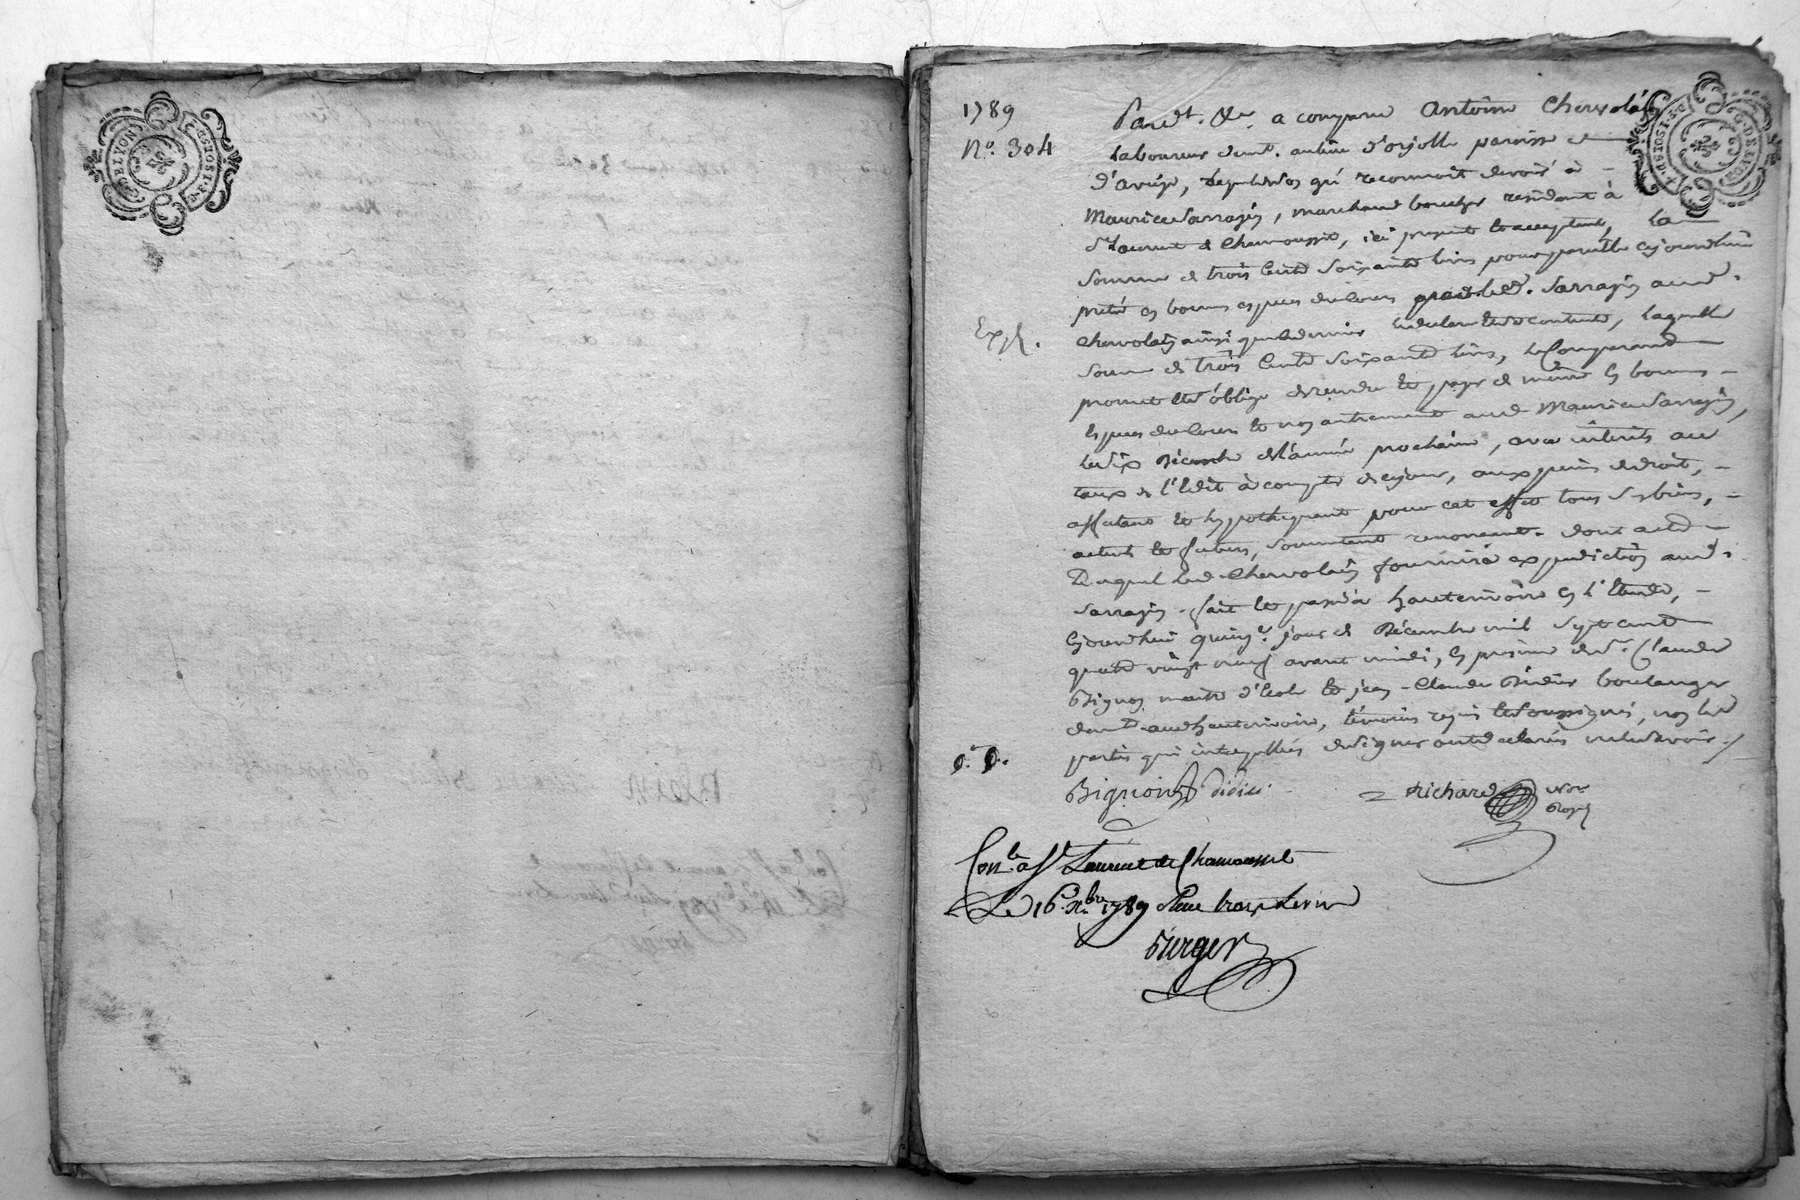 G. DE LYON
2. SOLS. 1. D.
1789
N.° 304
Expé.
Pard.t &c. a comparu Antoine Chervolin
Laboureur demt. au lieu d'orjolle paroisse
d'aveyse, lequel reconnoit devoir à
Maurice Sarrazin, marchand boucher résidant à
St Laurent de Chamousset, ici present et acceptant, la
somme de trois cents soixante livres pour pareille cejourdhui
prêté en bonnes especes de cours par led. Sarrazin aud.
Chervolin ainsi que le dernier le déclare et se contente, laquelle
somme de trois cents soixante livres, le Comparand
promet et s'oblige de rendre et payer de même en bonnes
especes de cours et non autrement aud. Maurice Sarrazin,
le dix Décembre de l'année prochaine, avec intérêts au
taux de l'Edit à compter de ce jour, aux peines de droit,
affectant et hypothéquant pour cet effet tous ses biens,
actuels et futurs, soumettant renonceant. dont acte
Duquel led. Chervolin fournira expédition aud.
Sarrazin. fait et passé à hauterivoire en l'Etude,
Cejourdhui quinz.e jour de Décembre mil sept cent
quatre vingt neuf avant midi, en présence de Sr. Claude
Bignon maitre d'école et jean-Claude Didier boulanger
demt. aud. hauterivoire, témoins requis et soussignés, non les
parties qui interpellées de signer ont déclaré ne le savoir ./
Bignon Didier
Richard Nore
Royal
Con.lé à St. Laurent de Chamousset
Le 16 Xbre 1789
Berger